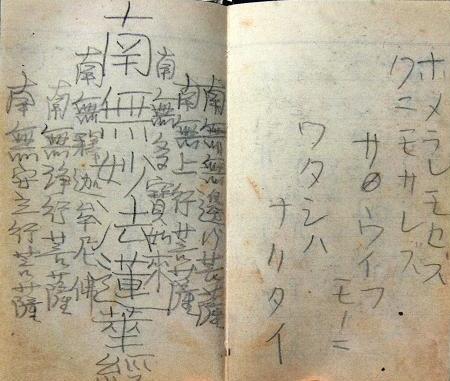 ホメラレモセズ
クニモサレズ
サウイフ
モノニ
ワタシハ
ナリタイ
南無無邊行菩薩
南無上行菩薩
南無多寶如来
南無妙法蓮華經
南無釋迦牟尼佛
南無浄行菩薩
南無安立行菩薩